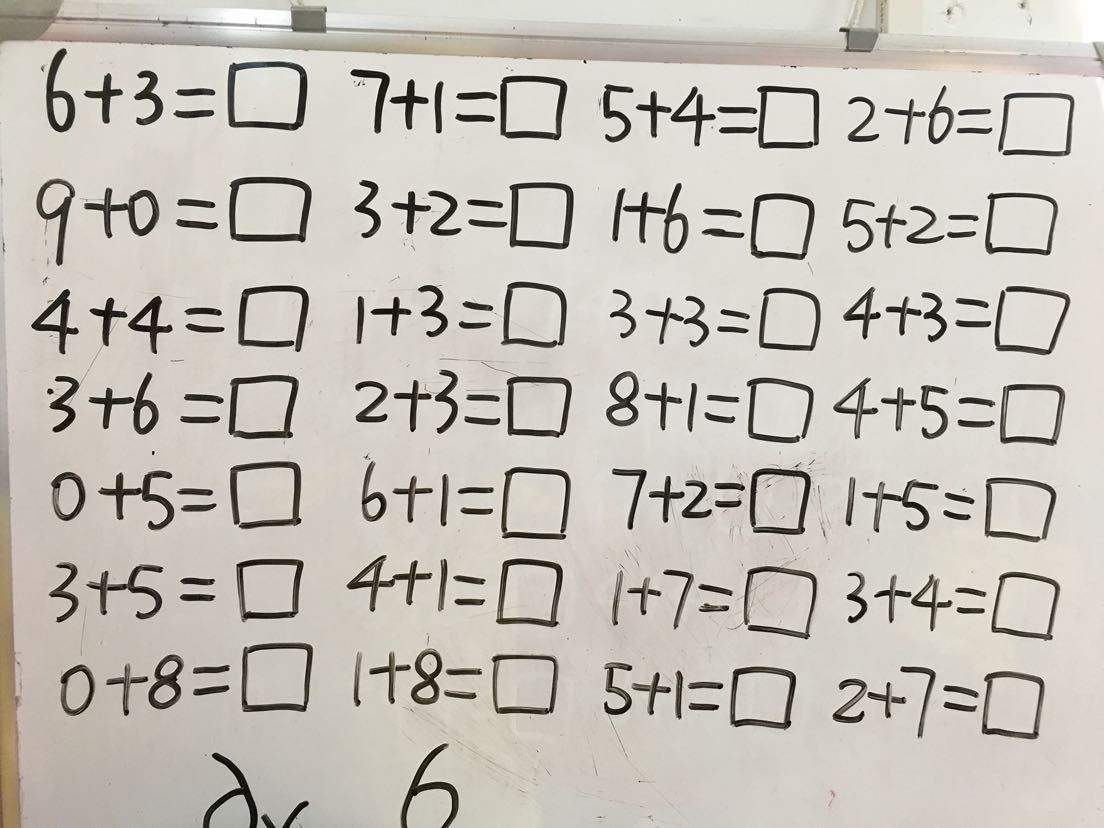 6+3=□ 7+1=□ 5+4=□ 2+6=□
9+0=□ 3+2=□ 1+6=□ 5+2=□
4+4=□ 1+3=□ 3+3=□ 4+3=□
3+6=□ 2+3=□ 8+1=□ 4+5=□
0+5=□ 6+1=□ 7+2=□ 1+5=□
3+5=□ 4+1=□ 1+7=□ 3+4=□
0+8=□ 1+8=□ 5+1=□ 2+7=□